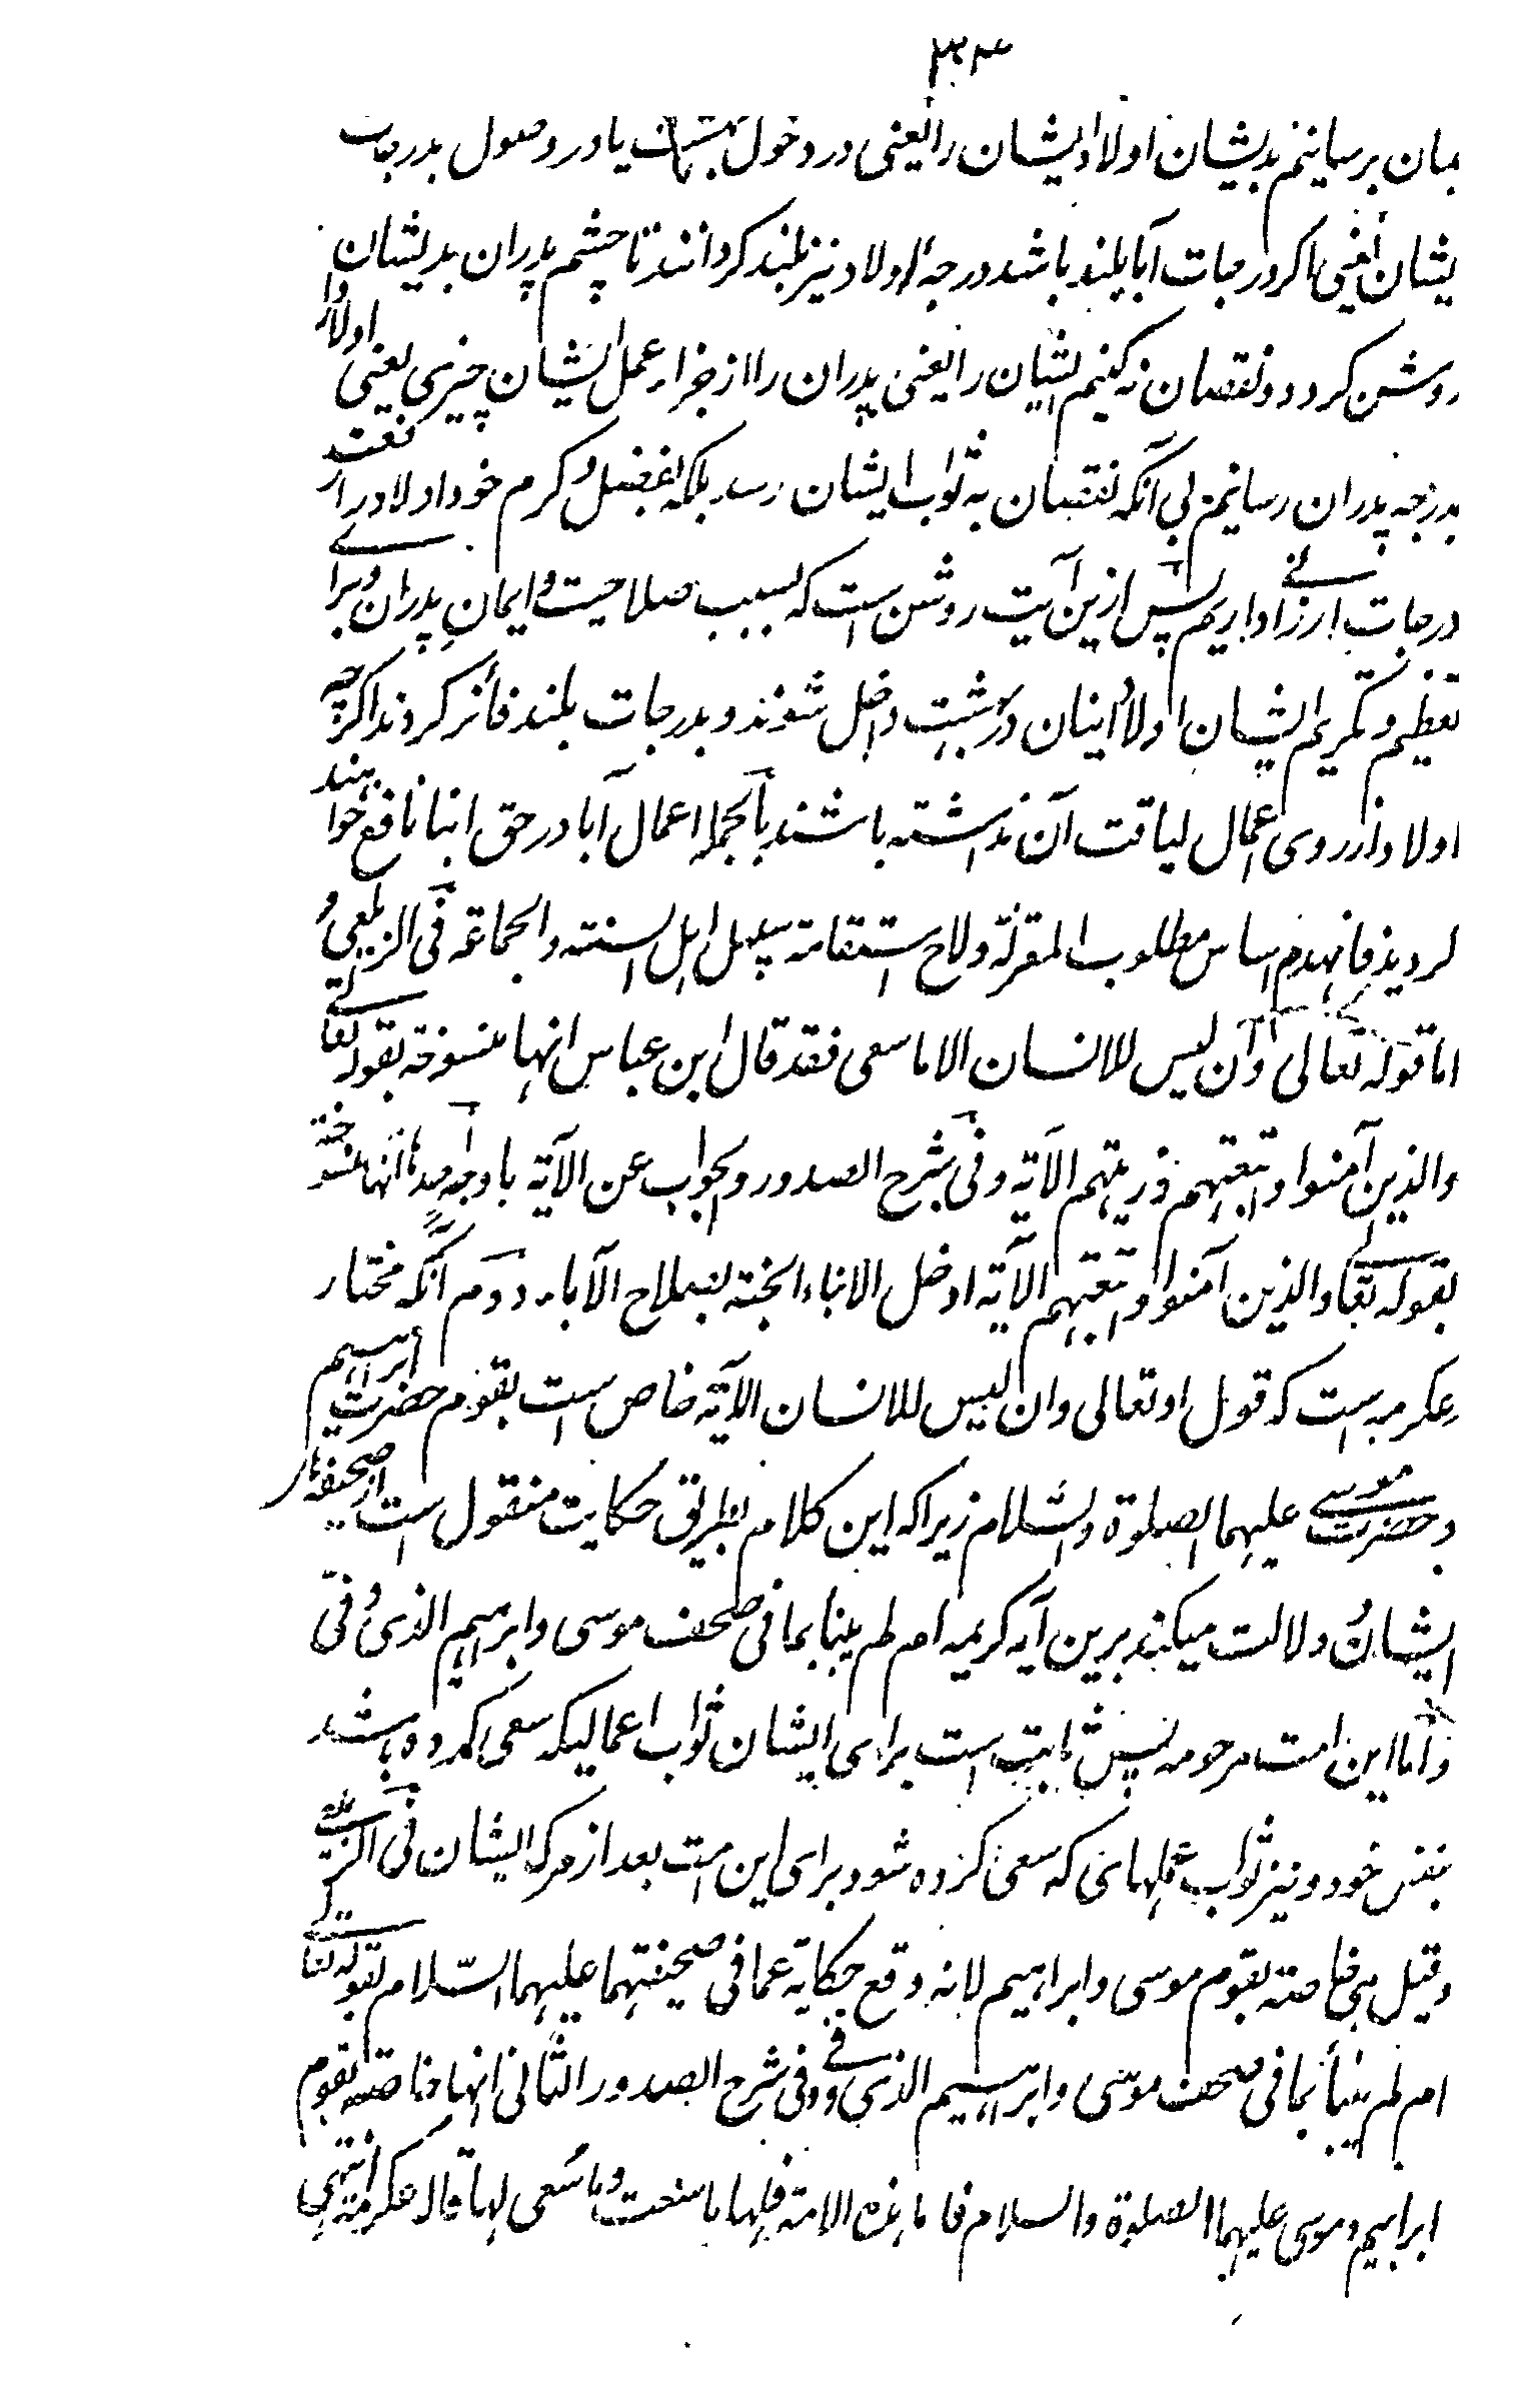 ۳۴
بان برسانیم بدیشان اولاد ایشان را یعنی در دخول بهشت یا در وصول بدرجات
یشان یعنی اگر درجات آبا بلند باشد درجهٔ اولاد نیز بلند گردانند تا چشم پدران بدیشان
روشن گردد و نقصان نه کنیم ایشان را یعنی پدران را از جزاء عمل ایشان چیزی یعنی اولاد را
بدرجه پدران رسانیم بی آنکه نقصان به ثواب ایشان رسد بلکه بفضل و کرم خود اولاد را رفعت
درجات ارزانی داریم پس ازین آیت روشن است که بسبب صلاحیت و ایمان پدران و برای
تعظیم و تکریم ایشان اولاد اینان در بهشت داخل شوند و بدرجات بلند فائز گردند اگرچه
اولاد از روی اعمال لیاقت آن نداشته باشند بالجمله اعمال آبا در حق ابنا نافع خواهند
گردید فانهدم اساس مطلوب المعتزلة ولاح استقامة سبیل اهل السنته والجماعة فی الزیلعی و
اما قوله تعالی وأن لیس للانسان الا ما سعی فقد قال ابن عباس انها منسوخة بقوله تعالی
والذین آمنوا و تبعتهم ذریتهم الآیة و فی شرح الصدور والجواب عن الآیة باوجه احدها انها منسوخة
بقوله تعالی والذین آمنوا و اتبعتهم الآیة ادخل الابناء الجنة بصلاح الآباء دوم آنکه مختار
عکرمه است که قول او تعالی وان لیس للانسان الآیة خاص است بقوم حضرت ابراهیم
و حضرت موسی علیهما الصلوة والسلام زیراکه این کلام بطریق حکایت منقول است از صحیفهای
ایشان و دلالت میکند برین آیه کریمه ام لم ینبأ بما فی صحف موسی وابراهیم الذی وفی
و اما این امت مرحومه پس ثابت است برای ایشان ثواب اعمالیکه سعی کرده باشد
بنفس خود و نیز ثواب عملهای که سعی کرده شود برای این امت بعد از مرگ ایشان فی الزیلعی
وقیل هی خاصته بقوم موسی وابراهیم لانه وقع حکایة عما فی صحیفتهما علیهما السّلام بقوله تعالی
ام لم ینبأ بما فی صحف موسی وابراهیم الذی وفی وفی شرح الصدور الثانی انها خاصته بقوم
ابراهیم و موسی علیهما الصلوة والسلام فاما هذه الامة فلها ما سعت وما سُعی لها قاله عکرمة انتهی